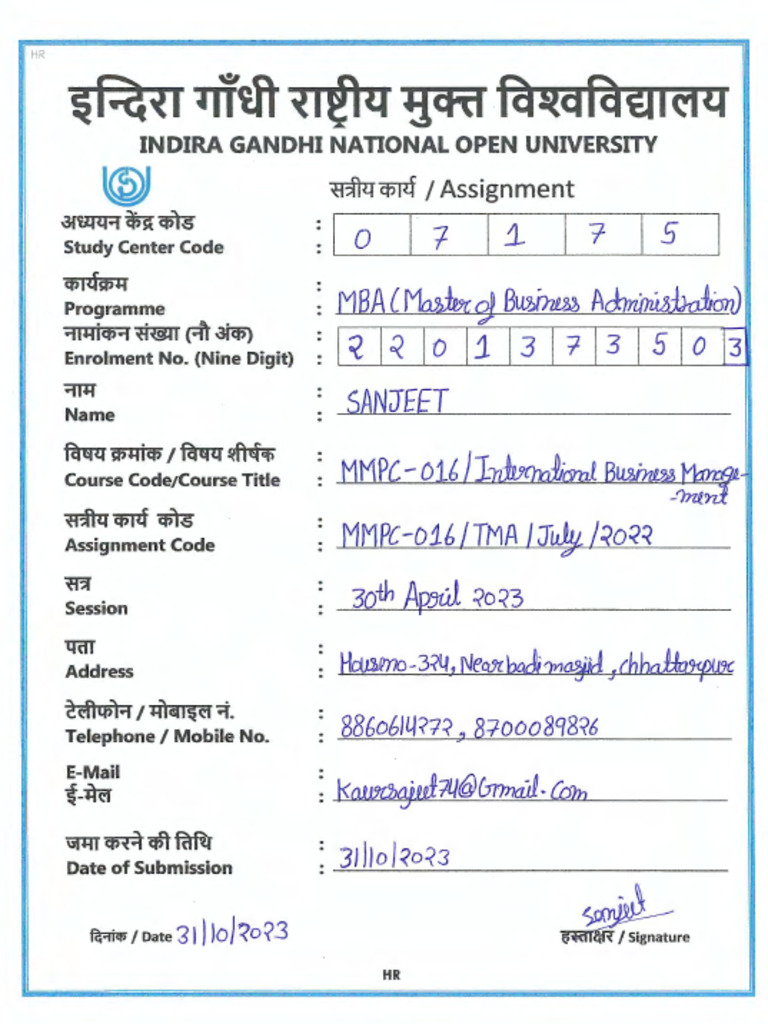 HR
इन्दिरा गाँधी राष्ट्रीय मुक्त विश्वविद्यालय
INDIRA GANDHI NATIONAL OPEN UNIVERSITY
सत्रीय कार्य / Assignment
अध्ययन केंद्र कोड :
Study Center Code : 0 7 1 7 5
कार्यक्रम :
Programme : MBA (Master of Business Administration)
नामांकन संख्या (नौ अंक) :
Enrolment No. (Nine Digit) : 2 2 0 1 3 7 3 5 0 3
नाम :
Name : SANJEET
विषय क्रमांक / विषय शीर्षक :
Course Code/Course Title : MMPC-016/International Business Manage-
-ment
सत्रीय कार्य कोड :
Assignment Code : MMPC-016/TMA/July/2022
सत्र :
Session : 30th April 2023
पता :
Address : Houseno-324, Near badi masjid, chhattarpur
टेलीफोन / मोबाइल नं. :
Telephone / Mobile No. : 8860614272, 8700089826
E-Mail :
ई-मेल : Kaursajeet74@Gmail.Com
जमा करने की तिथि :
Date of Submission : 31/10/2023
sanjeet
दिनांक / Date 31/10/2023 हस्ताक्षर / Signature
HR